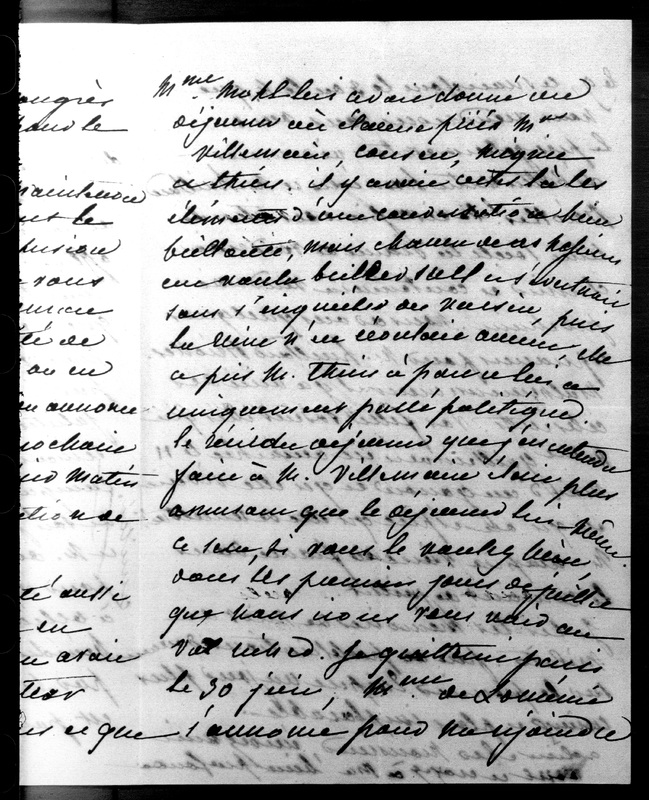 ongrès
pour le
maintenir
ont le
vous
té de
ou en
annonce
rochain
matin
té aussi
en
avait
ce que
Mme Mohl lui avait donné un
déjeuner où étaient priés Mrs
Villemain, Cousin, Mignet
et Thiers. il y avait certes là les
éléments d'une conversation bien
brillante, mais chacun de ces Messieurs
en voulu briller seul et s'écoutait
sans s'inquiéter du voisin, puis
la reine n'en écoutait aucun, elle
a pris M. Thiers à part et lui a
uniquement parlé politique.
le récit du déjeuner que j'ai entendu
faire à M. Villemain était plus
amusant que le déjeuner lui même.
ce sera, si vous le voulez bien,
dans les premiers jours de juillet
que nous irons vous voir au
Val Richer. Je quitterai paris
le 30 juin, Mme de Loménie
s'annonce pour me rejoindre